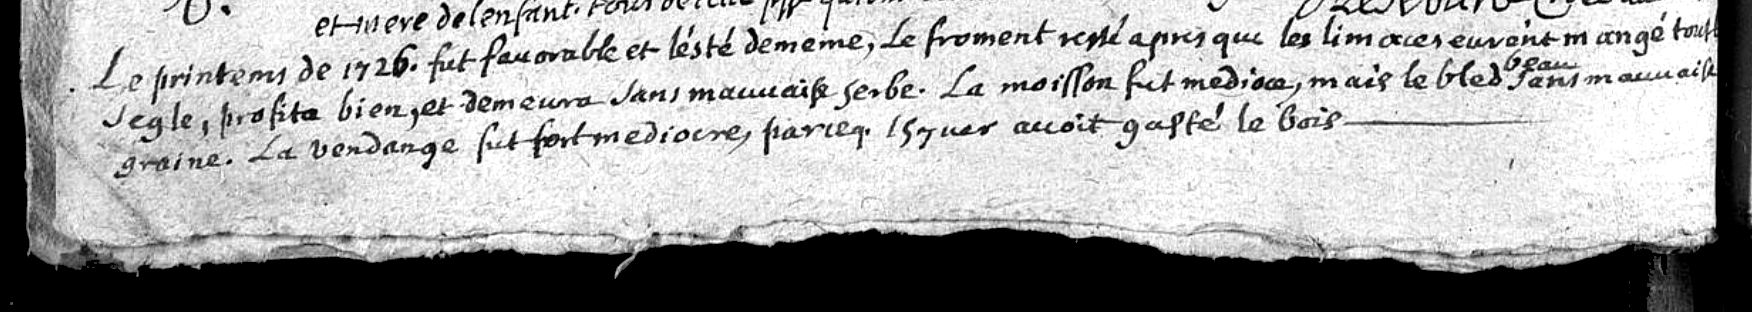 et mere de lenfant.
Le printems de 1726. fut favorable et lésté dememe, Le froment resté apres que les limaces eurent mangé tout
segle, profita bien, et demeura sans mauvaise herbe. La moisson fut mediocre, mais le bled beau sans mauvaise
graine. La vendange fut fort mediocre, parceq. lhyver avoit gasté le bois